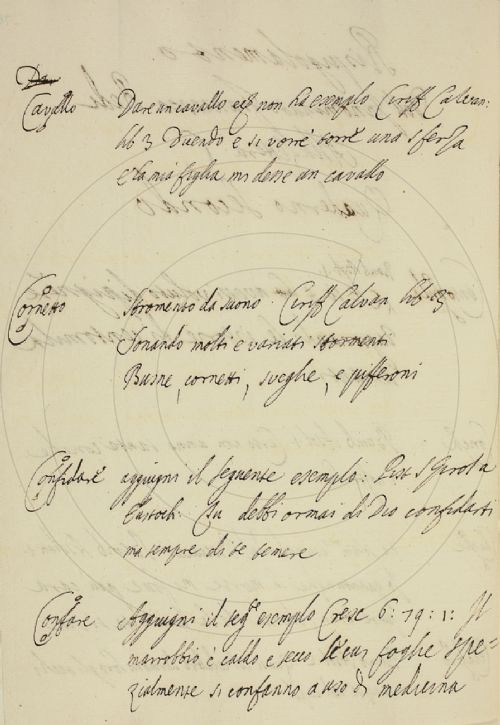 Da
Cavallo Dare un cavallo ecc non ha esempio Ciriff Calvan:
lib 3 Duendo e si vorrè torrè una sferza
E la mia figlia mi desse un cavallo
Cornetto Stromento da suono. Ciriff Calvan lib. 3
Sonando molti e variati stormenti
Busne, cornetti, sveghe, e pifferoni
Confidare aggiugni il seguente esempio: Pist S Girol a
Eustoch. Tu debbi ormai di Dio confidarti
ma sempre di te temere
Confare Aggiugni il seg.e esempio Cresc 6: 79: 1: Il
marrobbio è caldo e secco le cui foglie spe=
zialmente si confanno a uso di medicina